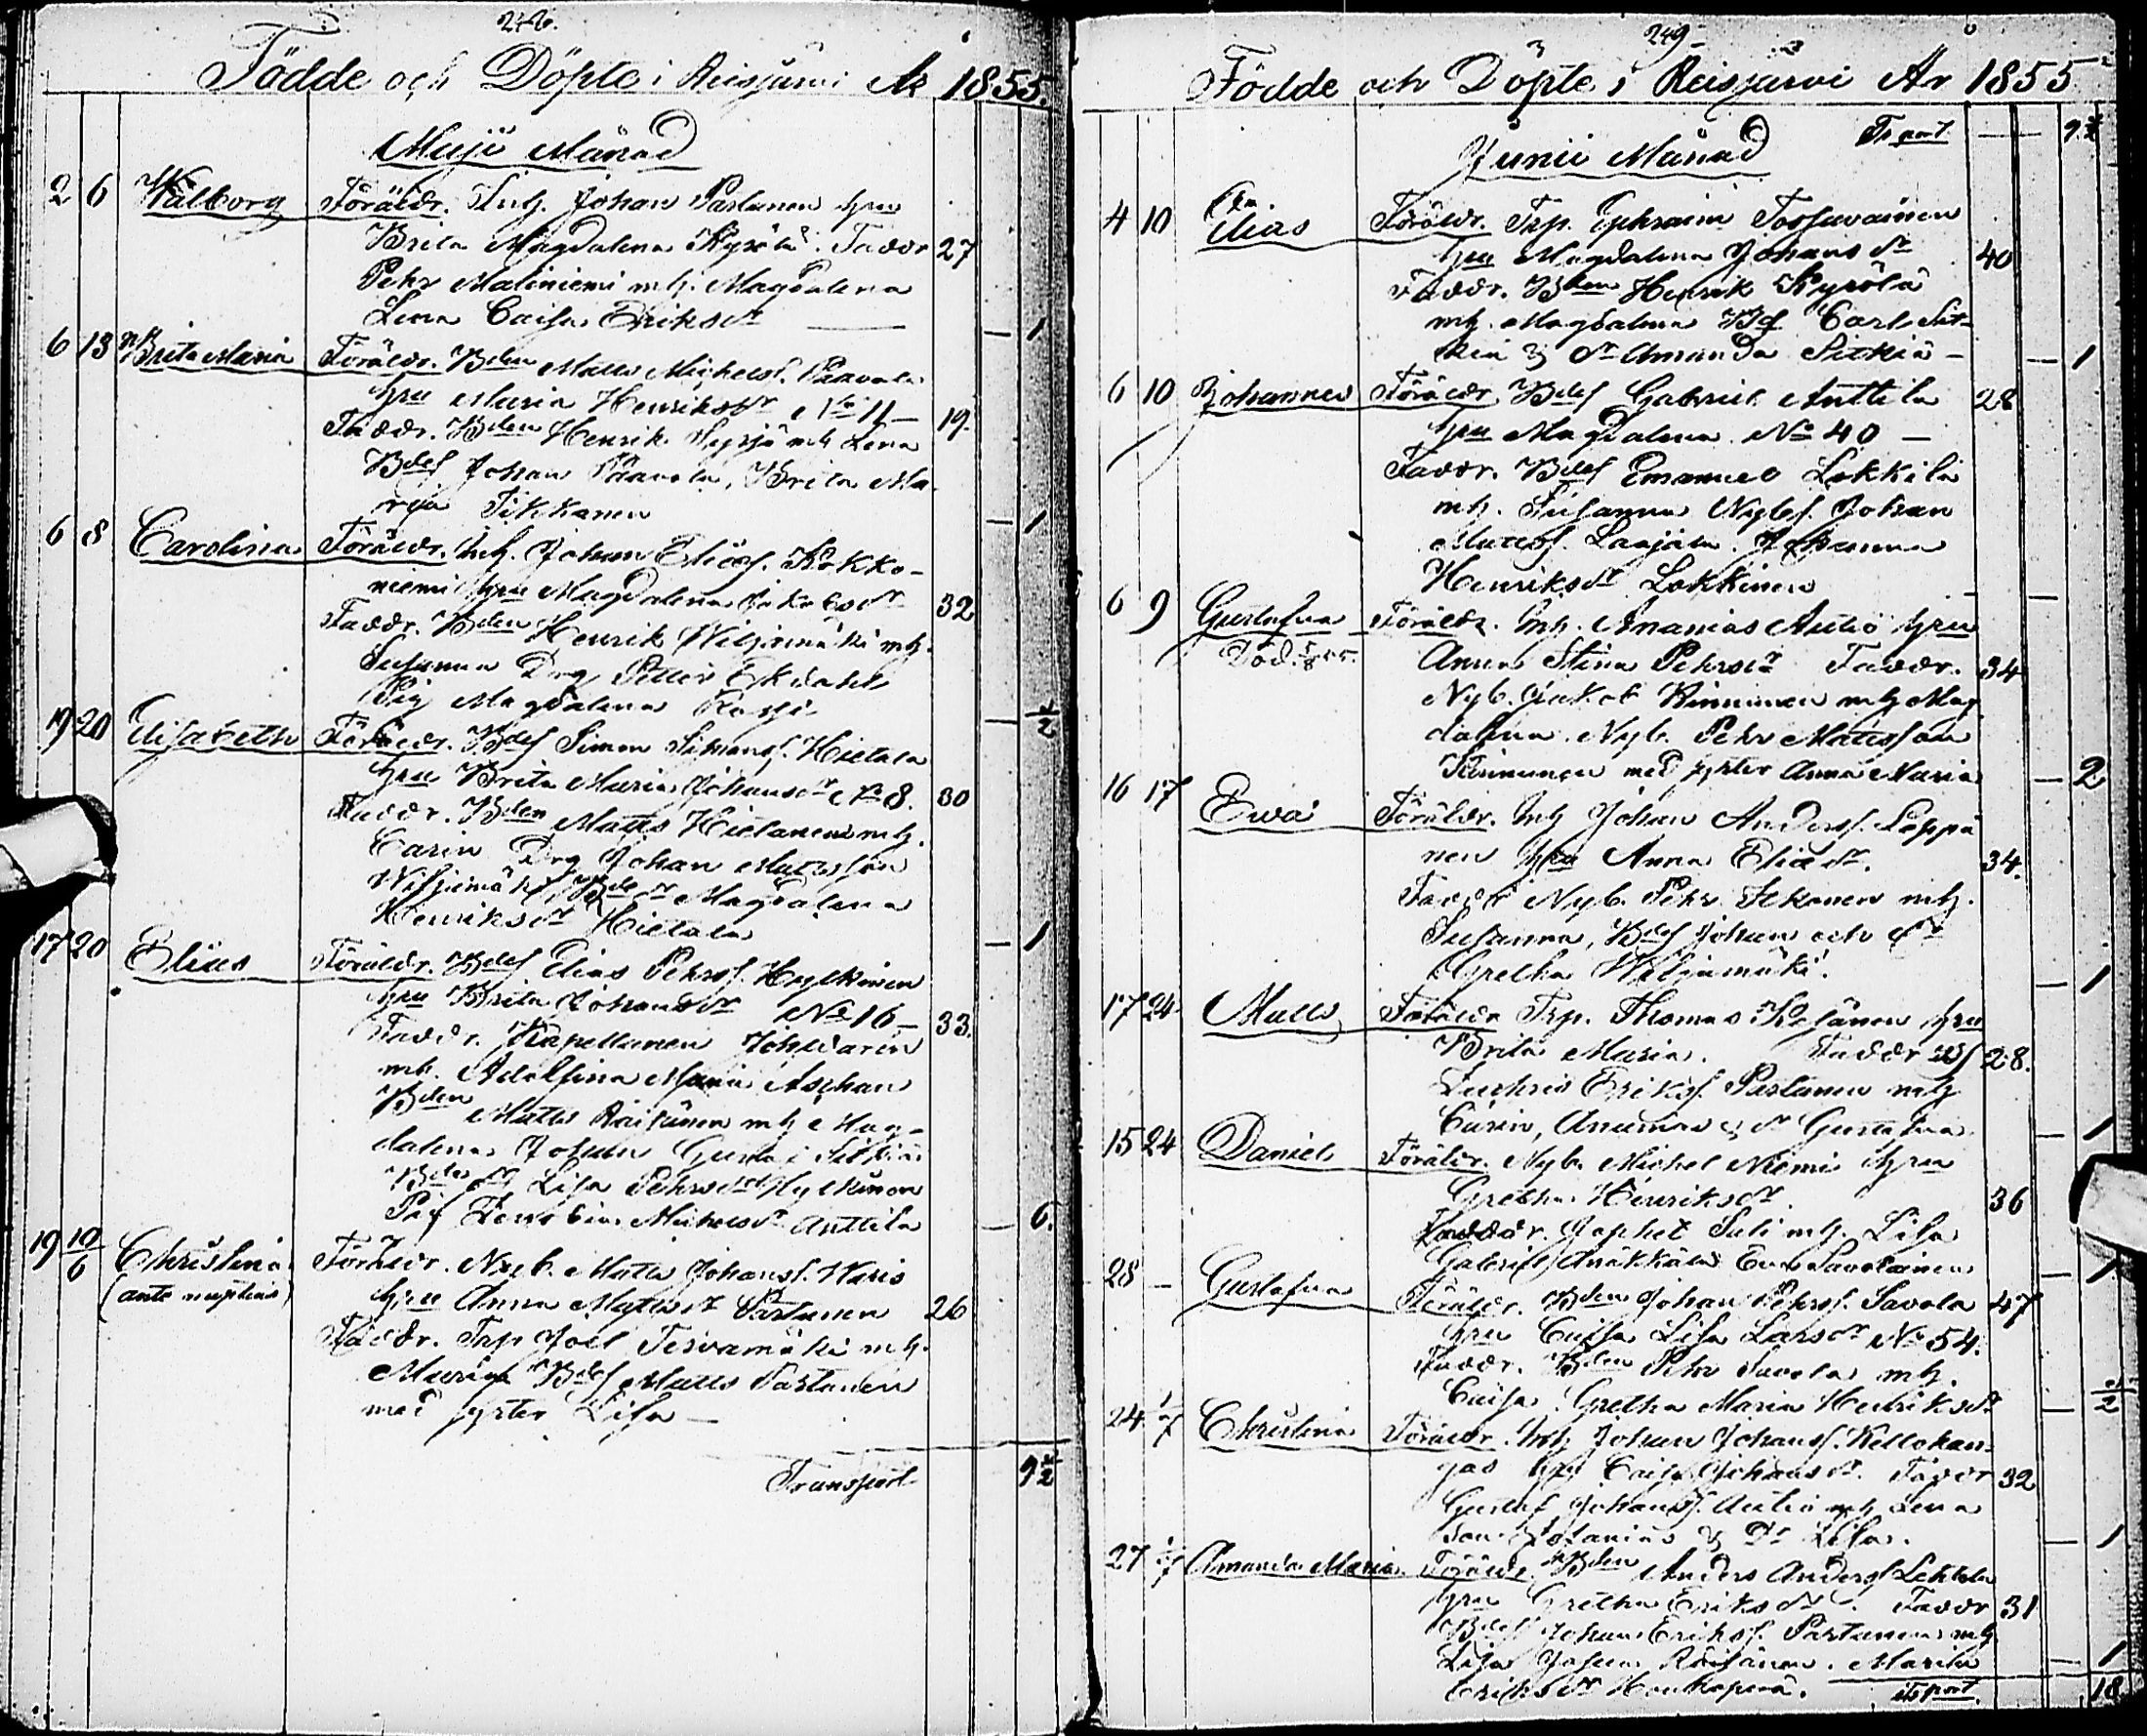 246.
Födde och Döpte i Reisjärvi År 1855.
Maji Månad
2 6 Walborg Föräldr. Inh. Johan Partanen hu
Brita Magdalena Kyrölä. Faddr 27
Pehr Maliniemi mh. Magdalena
Lena Caisa Eriksdr — 1
6 13 Brita Maria Föräldr. Bden Matts Michelss. Paavola
hu Maria Henriksdr No 11 — 19.
Faddr. Bden Henrik mh Lena
Bdes Johan Paavola, Brita Ma-
ria Tikkanen — 1
6 8 Carolina Föräldr. Inh. Johan Eliæs. Kokko-
niemi hu Magdalena Jakobsdr 32
Faddr. Bden Henrik Wiljamäki mh.
Susanna Drg Petter Ekdahl
Pig Magdalena — 1/2
19 20 Elisabeth Föräldr. Bdes Simon Simonss. Hietala
hu Brita Maria Johansdr No 8. 30
Faddr. Bden Matts Hietanen mh.
Carin Drg Johan Matsson
Wiljamäki, Bdedr Magdalena
Henriksdr Hietala — 1
17 20 Elias Föräldr. Bdes Elias Pehrss. Hylkinen
hu Brita Johansdr No 16 — 33.
Faddr. Kapellanen
mh. Adolfina Maria Aschan
Bden Matts Räisänen mh Mag-
dalena Johan Gustaf Sitkiä
Lisa Pehrsdr Hylkinen
Pig Michelsdr Anttila — 6.
19 10/6 Christina Föräldr. Nyb. Matts Johanss. Waris
(ante nuptias) hu Anna Matsdr Partanen 26
Faddr. Trp Joel Tervamäki mh.
Maria Bdes Matts Partanen
med syster Lisa —
Transport 9 1/2
249
Födde och Döpte i Reisjärvi År 1855
Tsport — 9 1/2
Junii Månad
4 10 Elias Föräldr. Trp. Ephraim Tossavainen
hu Magdalena Johansdr 40
Faddr. Bden Henrik Kyrölä
mh. Magdalena Bds Carl Sit-
kiä & dr Amanda Sitkiä — 1
6 10 Johannes Föräldr. Bdes Gabriel Anttila 28
hu Magdalena No 40 —
Faddr. Bdes Emanuel Lokkila
mh. Susanna Nybs. Johan
Matss. Laajala. Johanna
Henriksdr Lokkinen —
6 9 Gustafva Föräldr. Inh. Ananias Autio hu
Död. Anna Stina Pehrsdr Faddr. 34
Nyb. Jakob Kinnunen mh Mag-
dalena Nyb. Pehr Matsson
Kinnunen med syster Anna Maria — 2
16 17 Ewa Föräldr. Inh Johan Anderss. Leppä
nen hu Anna Eliædr. 34.
Faddr Nyb. Pehr Itkonen mh.
Susanna, Bdes Johan och dr
Gretha Wiljamäki. — 1
17 24 Matts Föräldr Trp. Thomas Kesänen hu
Brita Maria. Faddr 28.
Zachris Erikss. Partanen mh
Carin, Ananias & dr Gustafva — 1
15 24 Daniel Föräldr. Nyb. Michel Niemi hu
Gretha Henriksdr. 36
Faddr. Japhet Suti mh. Lisa
Gabriel Savolainen — 1
28 — Gustafva Föräldr. Bden Johan Pehrss. Savola 47
hu Caisa Lisa Larsdr No 54.
Faddr. Bden Pehr Savola mh.
Caisa Gretha Maria Henriksdr — 1/2
24 1/7 Christina Föräldr. Inh Johan Johanss. Kellokan-
gas hu Caisa Johansdr. Faddr 32
Gustaf Johanss. Autio mh Lena
son & Dr Lisa. — 1
27 1/7 Amanda Maria. Föräldr. Bden Anders Anderss Lehtola
hu Gretha Eriksdr. Faddr 31
Bdes Johan Erikss. Partanen mh
Lisa Johan Räisänen. Maria — 1
Eriksdr Honkaperä. Tsport. 18